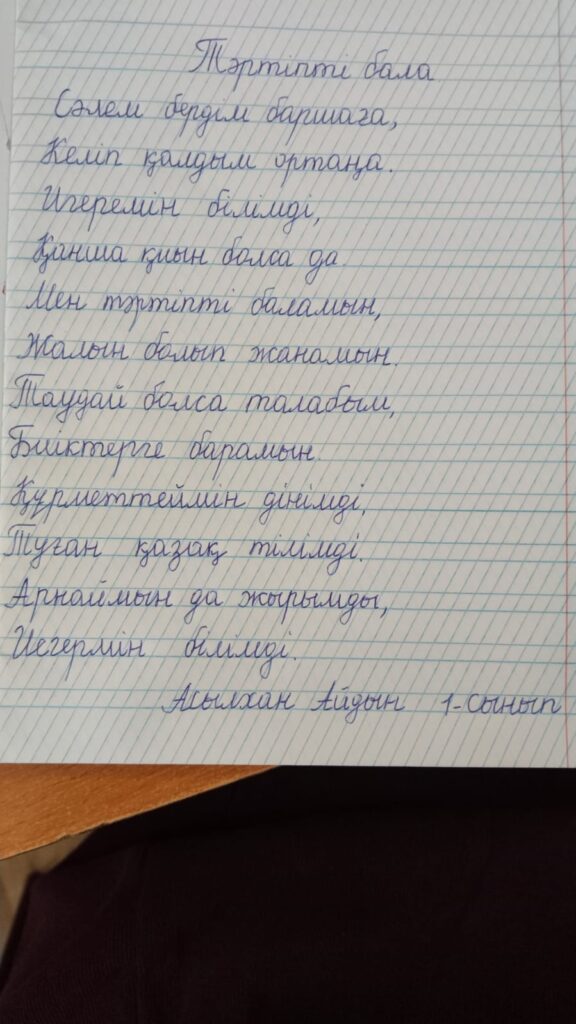 Тәртіпті бала
Сәлем бердім баршаға,
Келіп қалдым ортаңа.
Игеремін білімді,
Қанша қиын болса да.
Мен тәртіпті баламын,
Жалын болып жанамын.
Таудай болса талабым,
Биіктерге барамын.
Құрметтеймін дінімді,
Туған қазақ тілімді.
Арнаймын да жырымды,
Иегермін білімді.
Асылхан Айдын 1-сынып